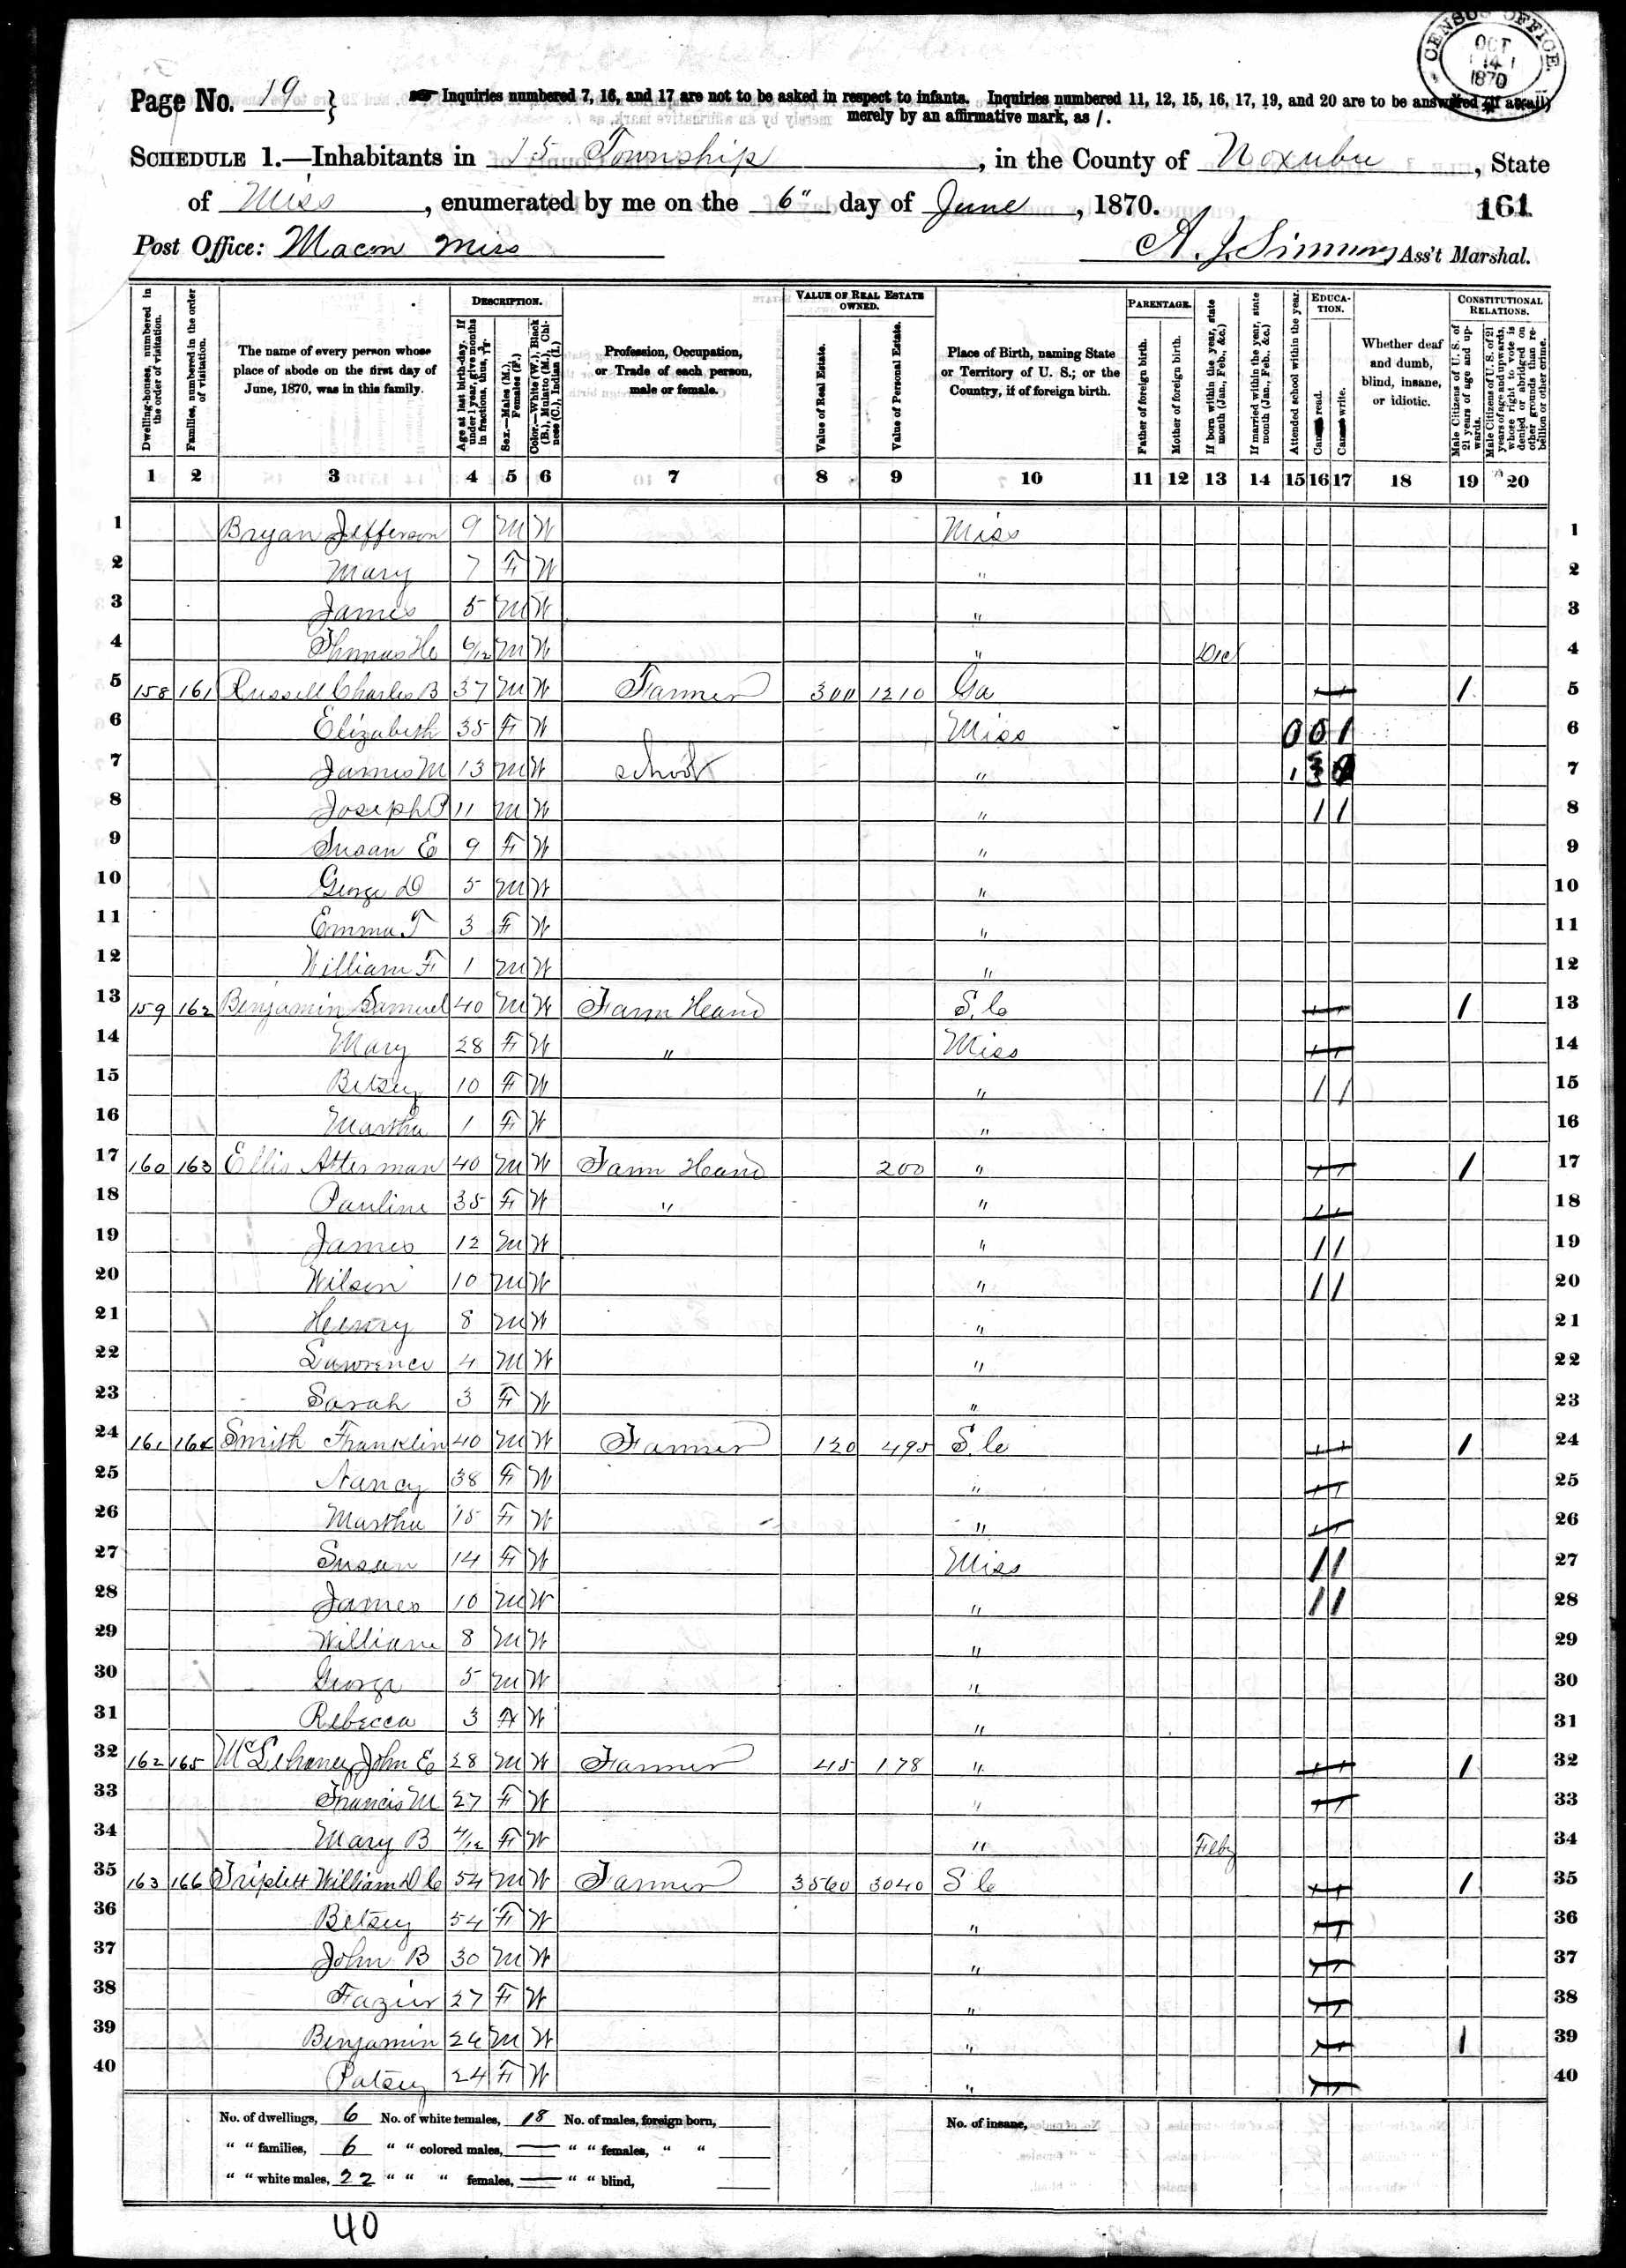 CENSUS OFFICE.
OCT
14
1870
Page No. 19 }
Inquiries numbered 7, 16, and 17 are not to be asked in respect to infants. Inquiries numbered 11, 12, 15, 16, 17, 19, and 20 are to be answered (if at all)
merely by an affirmative mark, as /.
SCHEDULE 1.—Inhabitants in 15 Township, in the County of Noxubee, State
of Miss, enumerated by me on the 6" day of June, 1870. 161
Post Office: Macon Miss A. J. Simmons, Ass't Marshal.
Dwelling-houses, numbered in the order of visitation.
Families, numbered in the order of visitation.
The name of every person whose place of abode on the first day of June, 1870, was in this family.
DESCRIPTION.
Age at last birth-day. If under 1 year, give months in fractions, thus, 3/12.
Sex.—Males (M.), Females (F.)
Color.—White (W.), Black (B.), Mulatto (M.), Chinese (C.), Indian (I.)
Profession, Occupation, or Trade of each person, male or female.
VALUE OF REAL ESTATE OWNED.
Value of Real Estate.
Value of Personal Estate.
Place of Birth, naming State or Territory of U. S.; or the Country, if of foreign birth.
PARENTAGE.
Father of foreign birth.
Mother of foreign birth.
If born within the year, state month (Jan., Feb., &c.)
If married within the year, state month (Jan., Feb., &c.)
Attended school within the year.
EDUCATION.
Cannot read.
Cannot write.
Whether deaf and dumb, blind, insane, or idiotic.
CONSTITUTIONAL RELATIONS.
Male Citizens of U. S. of 21 years of age and upwards.
Male Citizens of U. S. of 21 years of age and upwards, whose right to vote is denied or abridged on other grounds than rebellion or other crime.
1 2 3 4 5 6 7 8 9 10 11 12 13 14 15 16 17 18 19 20
1 Bryan Jefferson 9 M W Miss 1
2 Mary 7 F W " 2
3 James 5 M W " 3
4 Thomas H 6/12 M W " Dec 4
5 158 161 Russell Charles B 37 M W Farmer 300 1210 Ga 1 5
6 Elizabeth 35 F W Miss 0 0 1 6
7 James M 13 M W school " 1 7
8 Joseph P 11 M W " 1 1 8
9 Susan E 9 F W " 9
10 George D 5 M W " 10
11 Emma T 3 F W " 11
12 William F 1 M W " 12
13 159 162 Benjamin Samuel 40 M W Farm Hand S.C 1 13
14 Mary 28 F W " Miss 14
15 Betsey 10 F W " 1 1 15
16 Martha 1 F W " 16
17 160 163 Ellis Atterman 40 M W Farm Hand 200 " 1 17
18 Pauline 35 F W " " 18
19 James 12 M W " 1 1 19
20 Wilson 10 M W " 1 1 20
21 Henry 8 M W " 21
22 Lawrence 4 M W " 22
23 Sarah 3 F W " 23
24 161 164 Smith Franklin 40 M W Farmer 120 495 S.C 1 24
25 Nancy 38 F W " 25
26 Martha 15 F W " 26
27 Susan 14 F W Miss 1 1 27
28 James 10 M W " 1 1 28
29 William 8 M W " 29
30 George 5 M W " 30
31 Rebecca 3 F W " 31
32 162 165 John E 28 M W Farmer 45 178 " 1 32
33 Francis M 27 F W " 33
34 Mary B 4/12 F W " Feby 34
35 163 166 Triplett William D C 54 M W Farmer 3560 3040 S C 1 35
36 Betsey 54 F W " 36
37 John B 30 M W " 37
38 27 F W " 38
39 Benjamin 26 M W " 1 39
40 Patsey 24 F W " 40
No. of dwellings, 6 No. of white females, 18 No. of males, foreign born, No. of insane,
" " families, 6 " " colored males, — " " females, " "
" " white males, 22 " " " females, — " " blind,
40